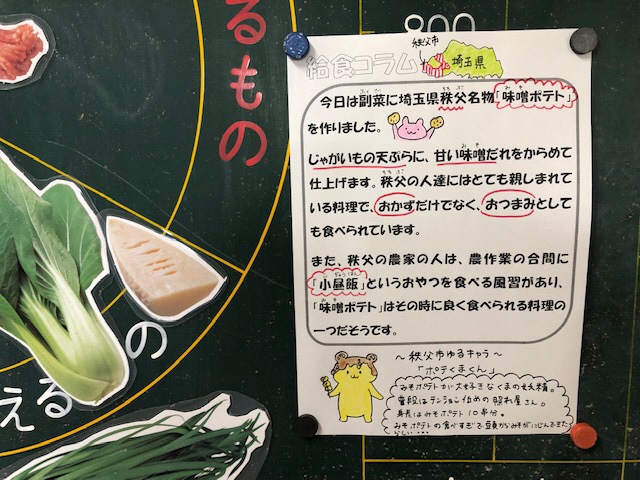 るもの
800
秩父市
給食コラム
埼玉県
今日は副菜に埼玉県秩父名物「味噌ポテト」
を作りました。
じゃがいもの天ぷらに、甘い味噌だれをからめて
仕上げます。秩父の人達にはとても親しまれて
いる料理で、おかずだけでなく、おつまみとして
も食べられています。
また、秩父の農家の人は、農作業の合間に
「小昼飯」というおやつを食べる風習があり、
「味噌ポテト」はその時に良く食べられる料理の
一つだそうです。
〜秩父市ゆるキャラ〜
「ポテくまくん」
みそポテトが大好きなくまの妖精。
普段はテンション低めの照れ屋さん。
身長はみそポテト10本分。
みそポテトの食べすぎで豆真からみそがにじんできた
らしい…
の
える